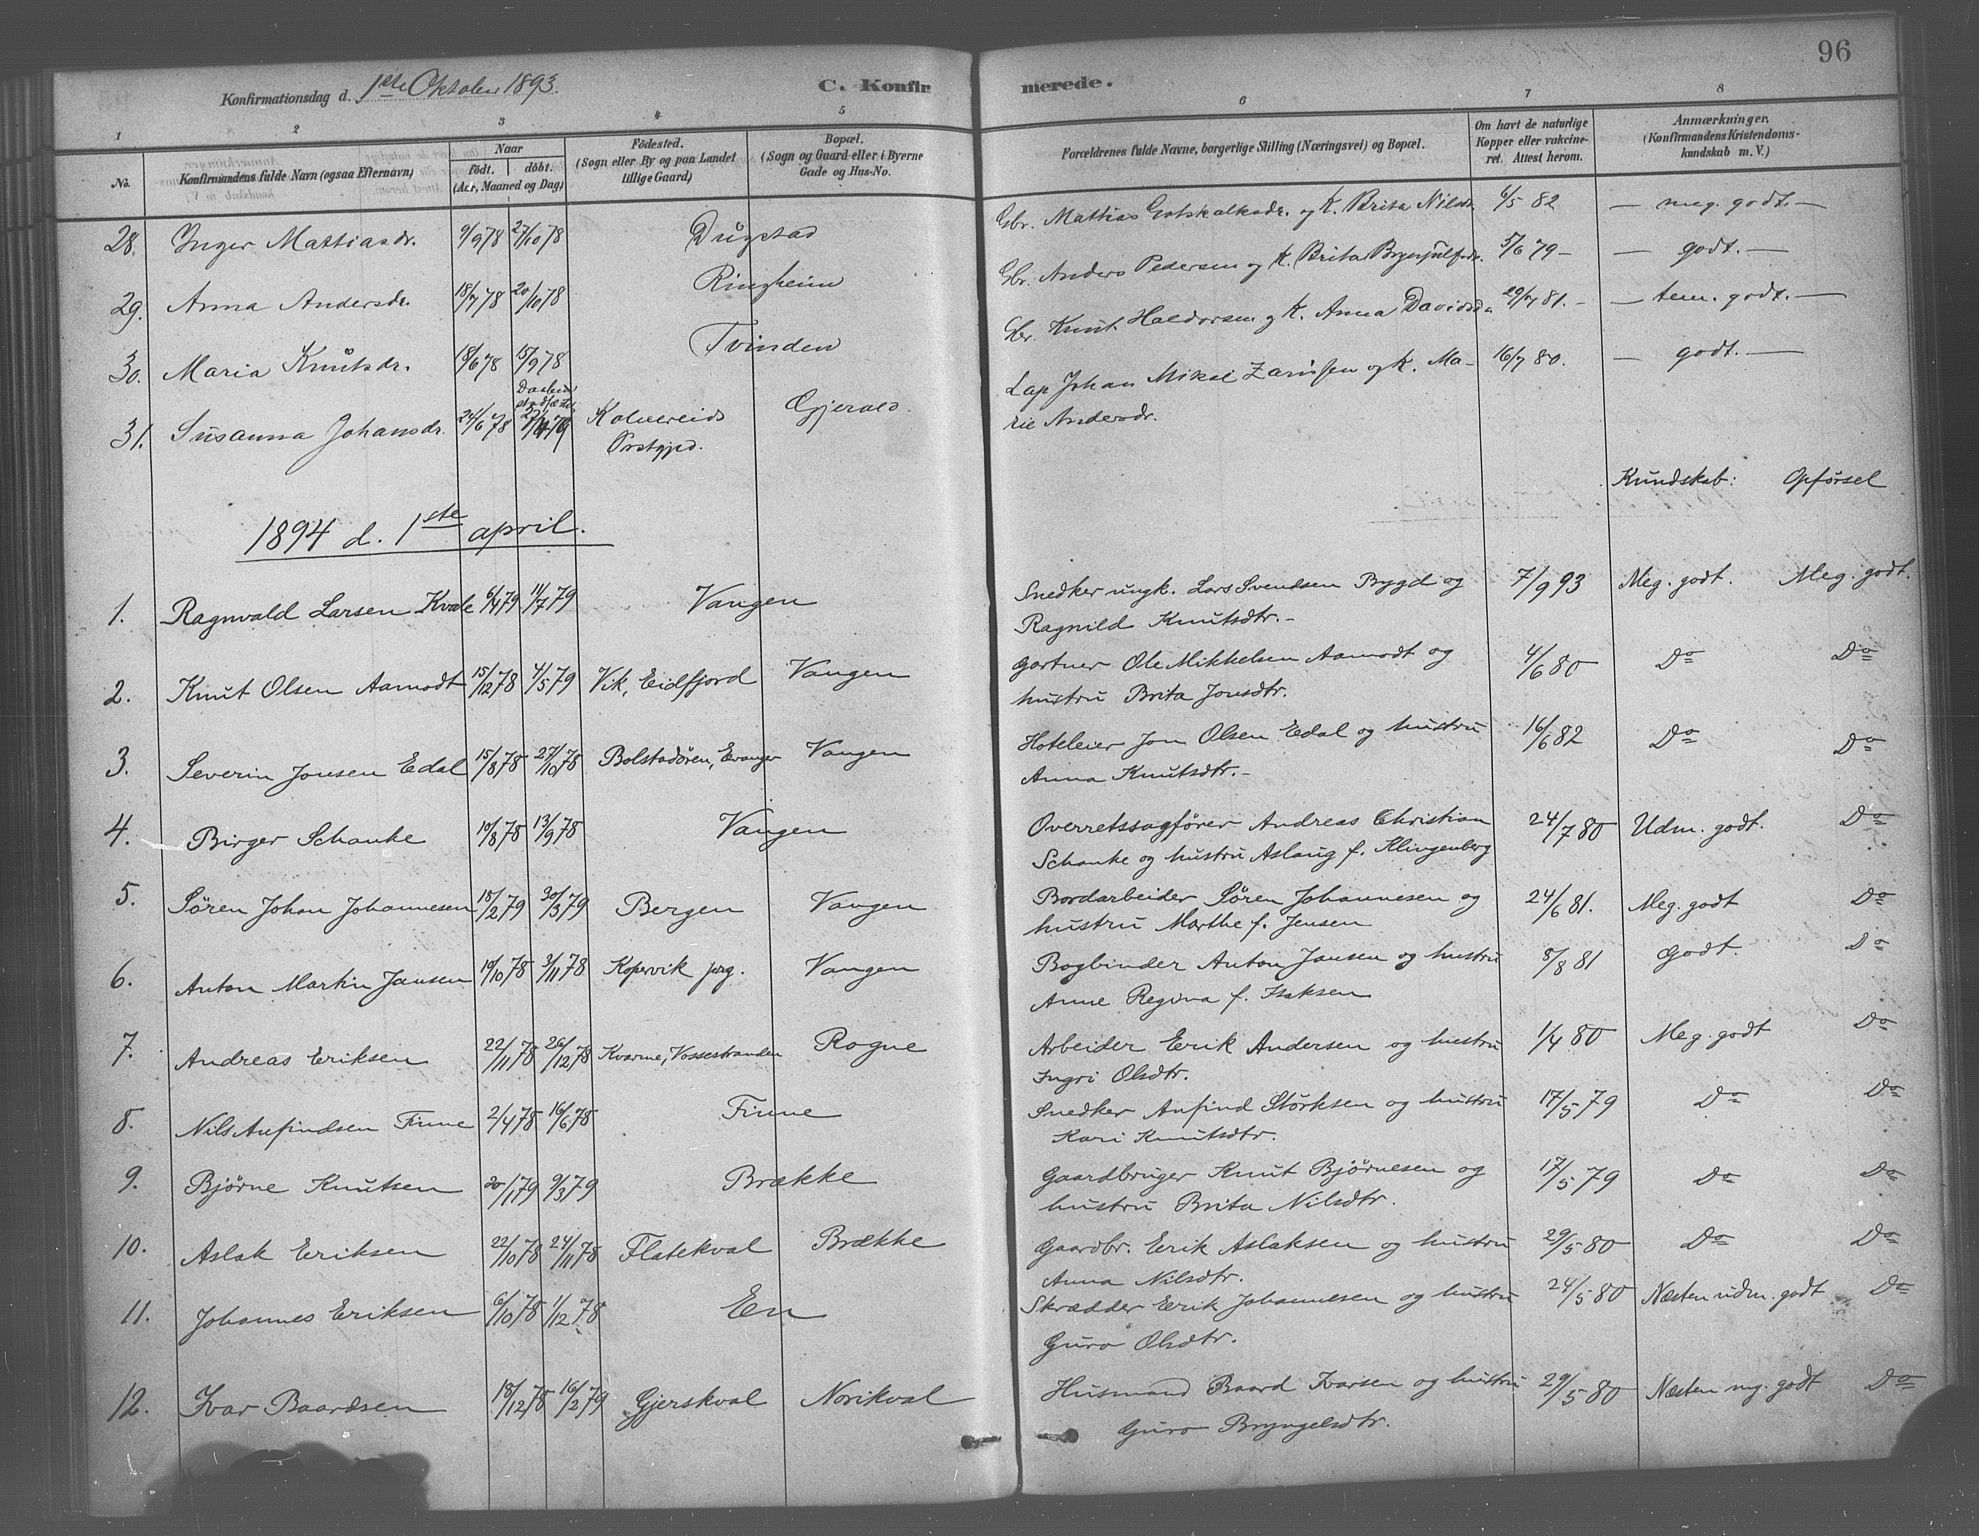 96
Konfirmationsdag d. 1ste Oktober 1893.
C. Konfirmerede.
1 2 3 4 5 6 7 8
No. Konfirmandens fulde Navn (ogsaa Efternavn) Naar født. døbt. (Aar, Maaned og Dag) Fødested. (Sogn eller By og paa Landet tillige Gaard) Bopæl. (Sogn og Gaard eller i Byerne Gade og Hus-No. Forældrenes fulde Navne, borgerlige Stilling (Næringsvei) og Bopæl. Om havt de naturlige Kopper eller vakcineret. Attest herom. Anmærkninger. (Konfirmandens Kristendomskundskab m. V.)
28. Inger Mattiasdr. 9/9 78 27/10 78 Dugstad Gbr. Mattias Gotskalksdr. og K. Brita Nilsdr. 6/5 82 — meg. godt. —
29. Anna Andersdr. 18/7 78 20/10 78 Ringheim Gbr. Anders Pedersen og K. Brita Brynjulfsdr. 5/6 79 — — godt. —
30. Maria Knutsdr. 18/6 78 15/9 78 Tvinden Gbr. Knut Haldorsen og K. Anna Davidsdr. 81. — — tem. godt. —
31. Susanna Johansdr. 24/6 78 Kolvereids Prstgjd. Gjerald. Lap Johan Mikal og K. Ma-
rie Andersdr. 16/7 80. — godt. —
Kundskab: Opførsel
1894 d. 1ste april.
1. Ragnvald Larsen Kvale 6/4 79 14/7 79 Vangen Snedker ungk. Lars Svendsen Bygd og
Ragnild Knutsdtr. - 7/9 93 Meg. godt. Meg. godt.
2. Knut Olsen Aamodt 15/12 78 4/5 79 Vik, Eidfjord Vangen Gartner Ole Mikkelsen Aamodt og
hustru Brita Jonsdtr. 4/6 80 Do Do
3. Severin Jonsen Edal 15/8 78 27/10 78 Bolstadøren, Evanger Vangen Hoteleier Jon Olsen Edal og hustru
Anna Knutsdtr. - 16/6 82 Do Do
4. Birger Schanke 10/8 78 13/9 78 Vangen Overretssagfører Andreas Christian
Schanke og hustru Aslaug f. Klingenberg 24/7 80 Udm. godt. Do
5. Søren Johan Johannesen 18/2 79 30/3 79 Bergen Vangen Bordarbeider Søren Johannesen og
hustru Marthe f. Jensen 24/6 81. Meg. godt Do
6. Anton Martin Jansen 10/10 78 3/11 78 Kopervik prg. Vangen Bogbinder Anton Jansen og hustru
Anne Regina f. Isaksen 8/8 81 Godt. Do
7. Andreas Eriksen 22/11 78 26/12 78 Kvarme, Vossestranden Rogne Arbeider Erik Andersen og hustru
Ingri Olsdtr. 1/4 80 Meg. godt Do
8. Nils Anfindsen Finne 2/4 78 16/6 78 Finne Snedker Anfind Størksen og hustru
Kari Knutsdtr. 17/5 79 Do Do
9. Bjørne Knutsen 20/1 79 9/3 79 Brække Gaardbruger Knut Bjørnesen og
hustru Brita Nilsdtr. 17/5 79 Do Do
10. Aslak Eriksen 22/10 78 24/11 78 Flatekval Brække Gaardbr. Erik Aslaksen og hustru
Anna Nilsdtr. 29/5 80 Do Do
11. Johannes Eriksen 6/10 78 1/12 78 Een Skrædder Erik Johannesen og hustru
Guro Olsdtr. 24/5 80 Næsten udm. godt Do
12. Ivar Baardsen 18/12 78 16/2 79 Gjerskval Norikval Husmand Baard Ivarsen og hustru
Guro Bryngelsdtr. 29/5 80 Næsten mg. godt Do